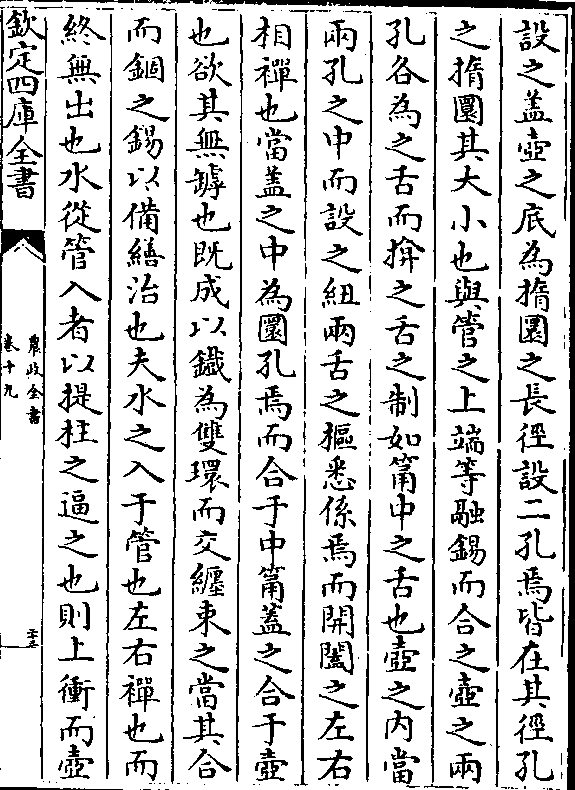 設之蓋壺之底為撱圜之長徑設二孔焉皆在其徑孔
之撱圜其大小也與管之上端等融錫而合之壺之兩
孔各為之舌而揜之舌之制如筩中之舌也壺之內當
兩孔之中而設之紐兩舌之樞悉係焉而開闔之左右
相禪也當蓋之中為圜孔焉而合于中筩蓋之合于壺
也欲其無罅也既成以鐵為雙環而交纏束之當其合
而錮之錫以備繕治也夫水之入于管也左右禪也而
終無出也水從管入者以提柱之逼之也則上衝而壺
欽定四庫全書
農政全書
卷十九